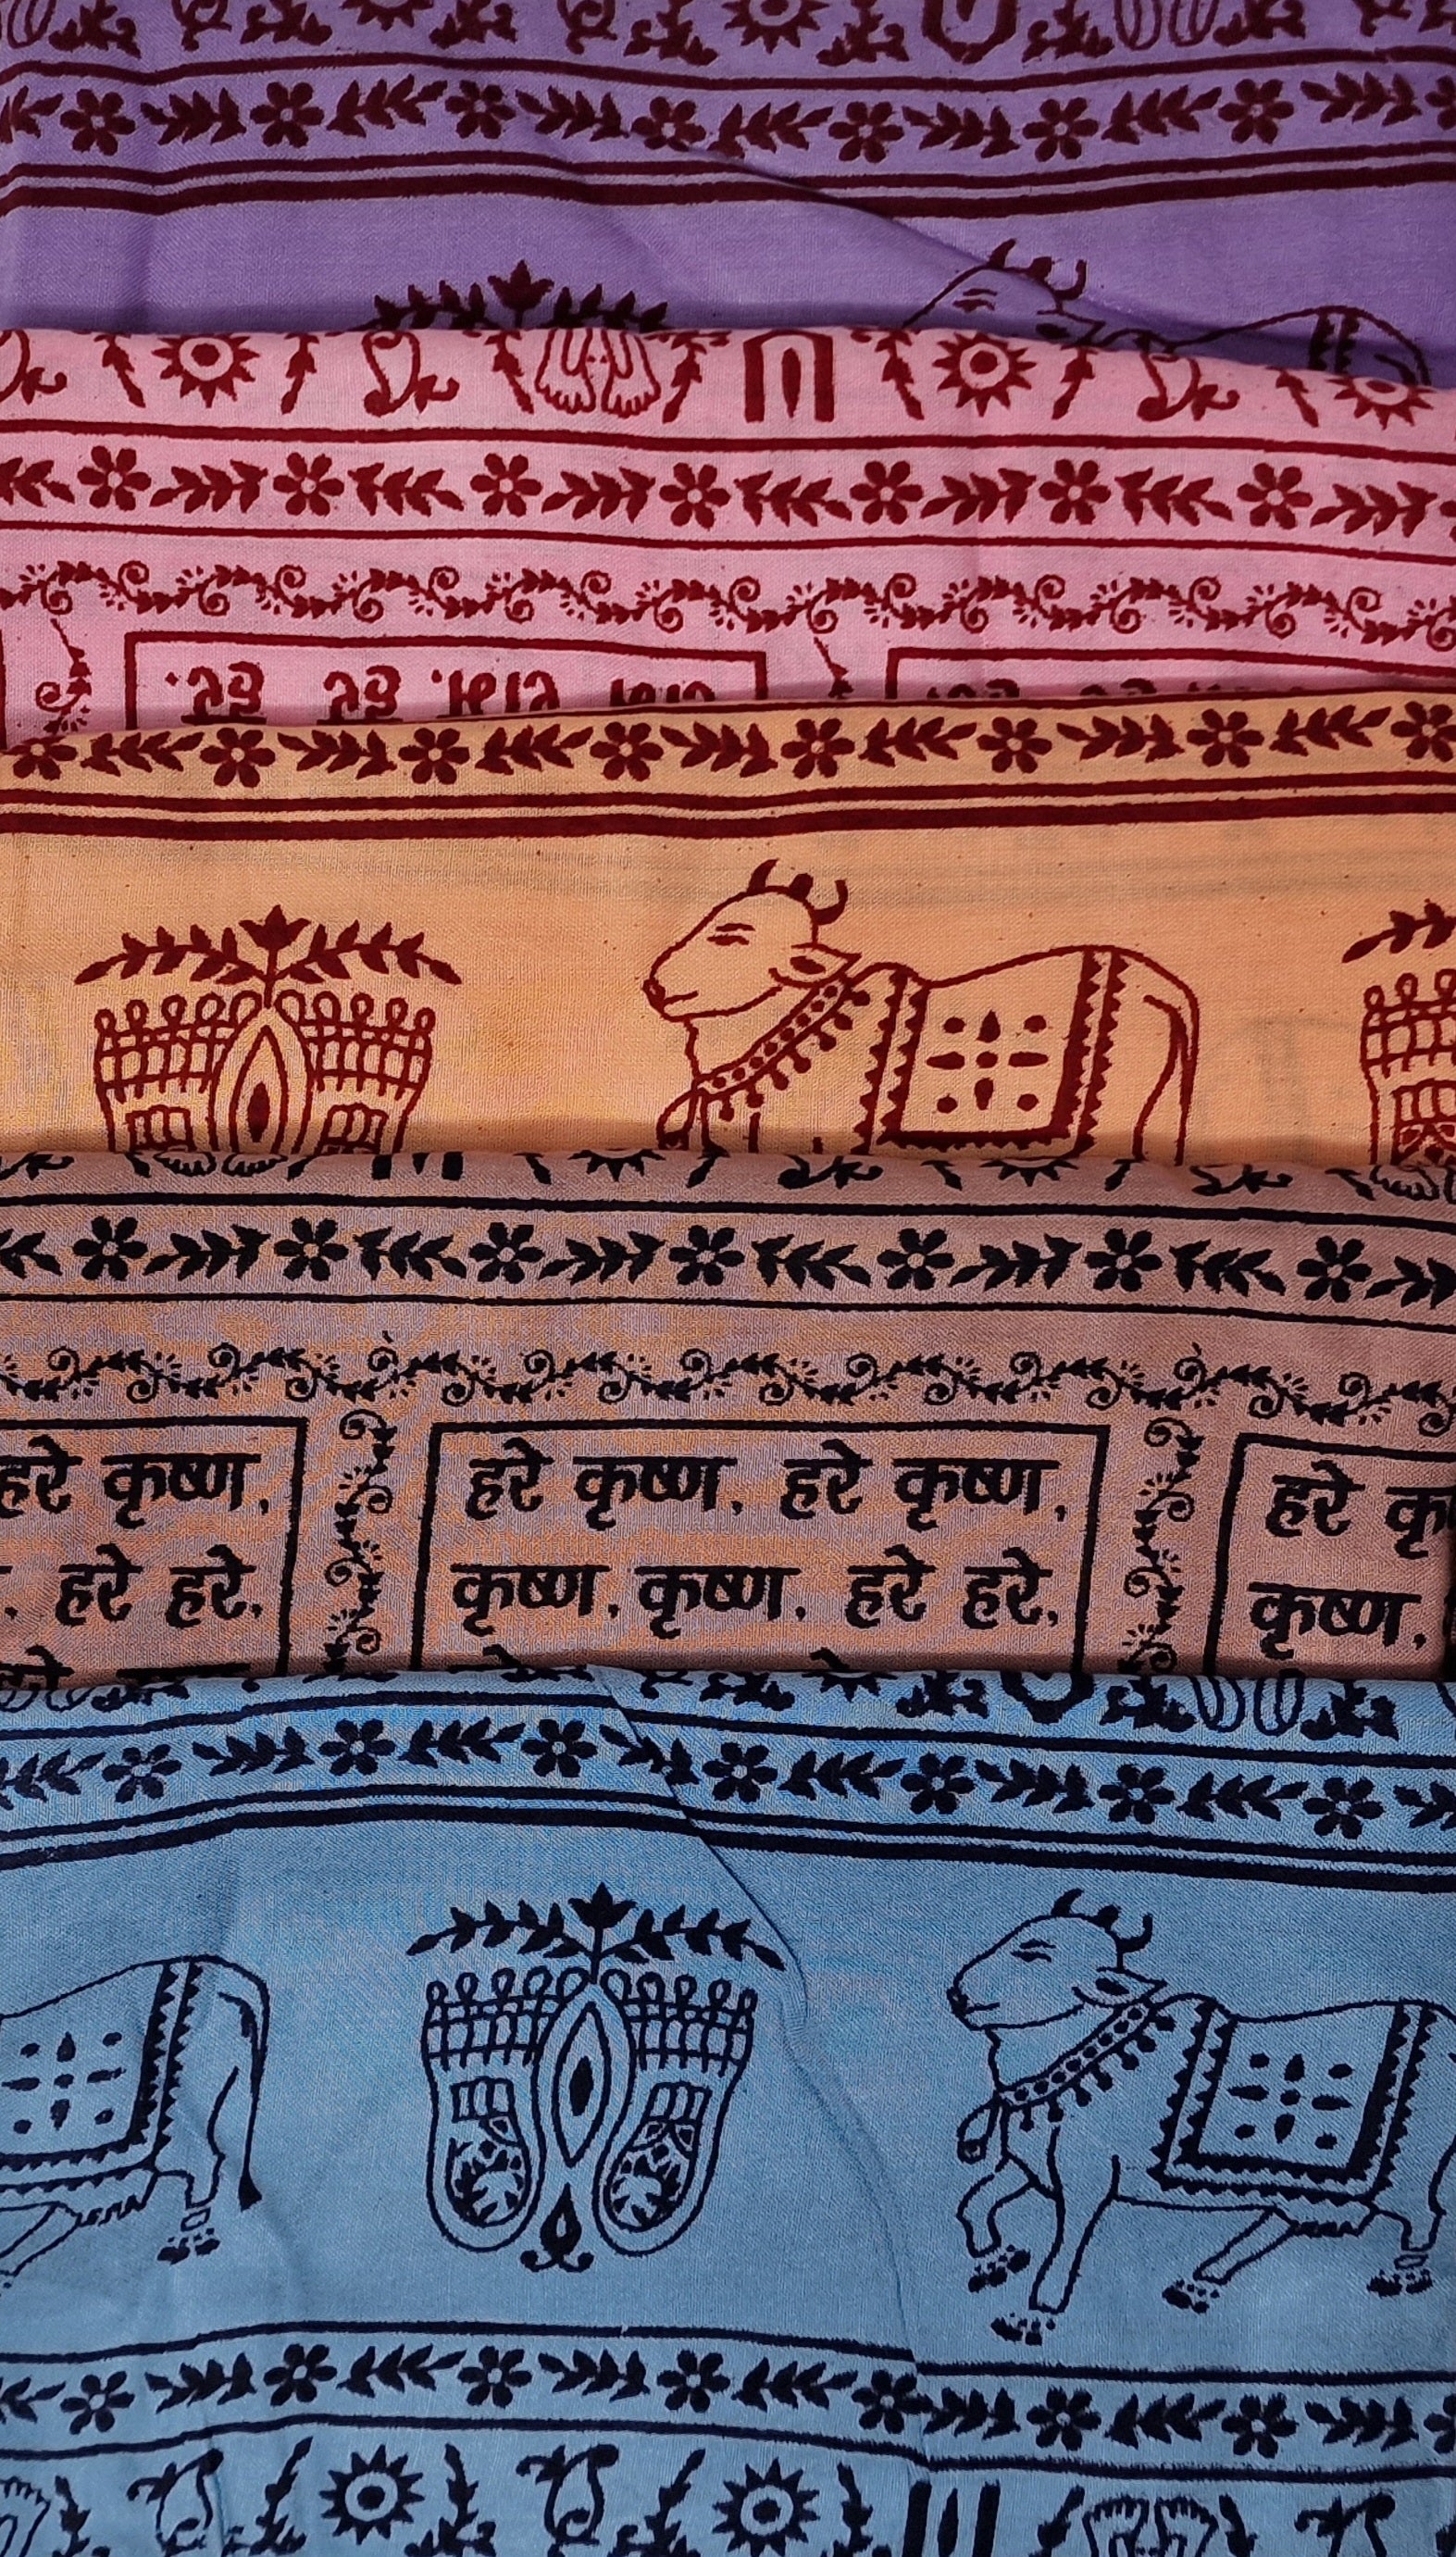 हरे कृष्ण, हरे कृष्ण,
कृष्ण, कृष्ण, हरे हरे,
हरे कृष्ण,
हरे हरे,
हरे
कृष्ण,